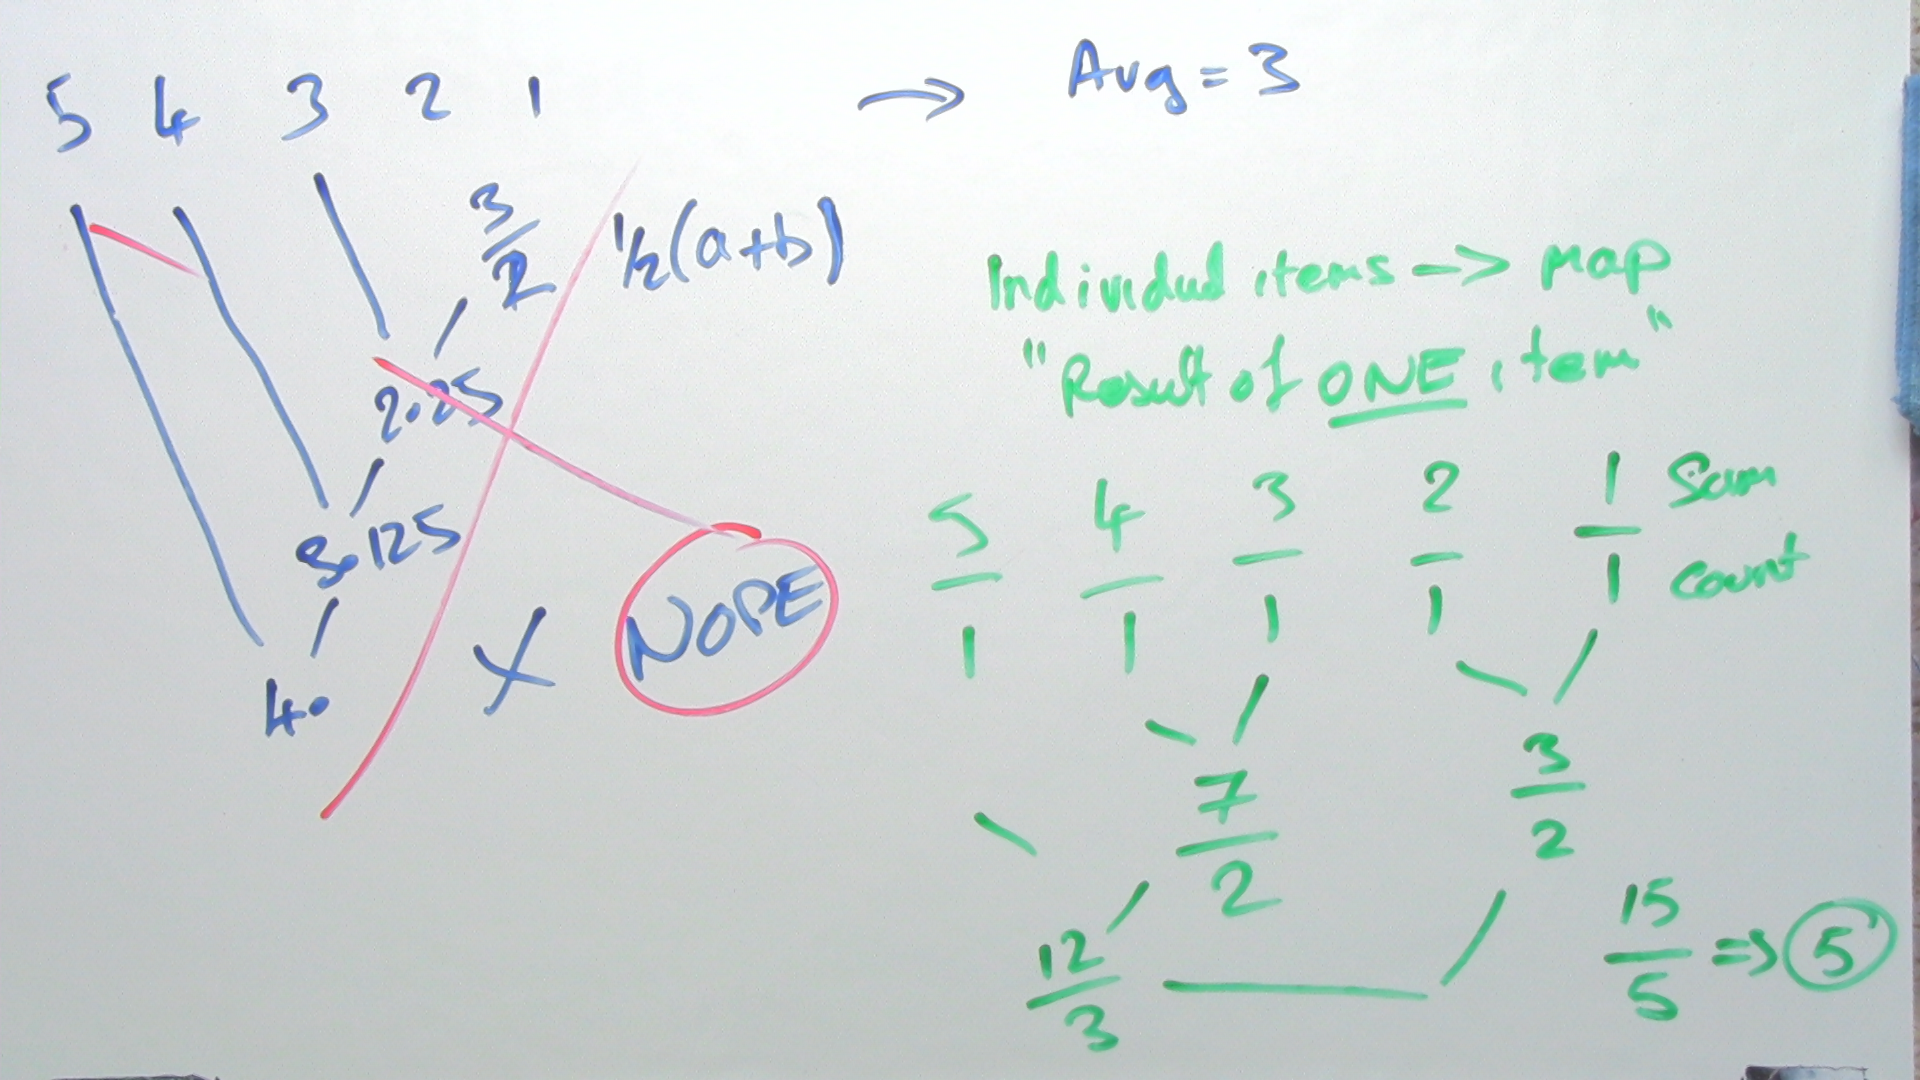 5 4 3 2 1 → Avg = 3
3/2 ½(a+b)
2.25
3.125
4.
X NOPE
Individual items -> map
"Result of ONE item"
5/1 4/1 3/1 2/1 1/1 Sum Count
7/2 3/2
12/3 15/5 => 5